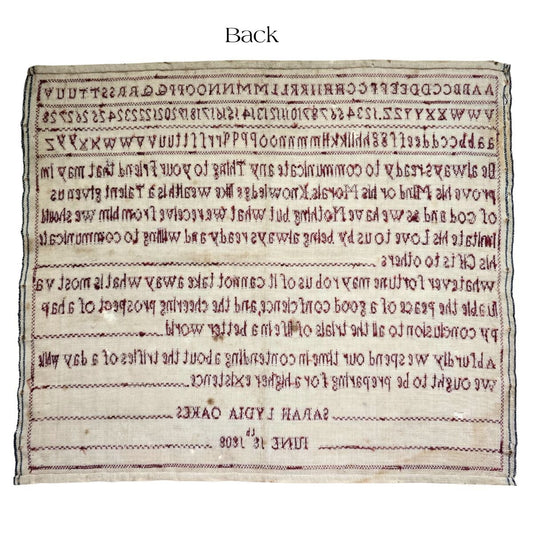 Back
AABBCCDDEEFFGGHHIIKKLLMMNNOOPPQRRSSTTUUV
VWWXXYYZZ 1 2 3 4 5 6 7 8 9 10 11 12 13 14 15 16 17 18 19 20 21 22 23 24 25 26 27 28
aabbccddeeffgghhiikkllmmnnooppqqrrſsttuuvwxyz
Be always ready to communicate any Thing to your Friend that may im
prove his Mind or his Morals, Knowledge like wealth is a Talent given us
of god and as we have Nothing but what we receive from him we should
imitate his Love to us by being always ready and willing to communicate
his Gifts to others
Whatever fortune may rob us of it cannot take away what is most va
luable the peace of a good conſcience, and the cheering prospect of a hap
py conclusion to all the trials of life in a better world
Abſurdly we spend our time in contending about the trifles of a day while
we ought to be preparing for a higher existence
SARAH LYDIA OAKES
JUNE 18th 1808